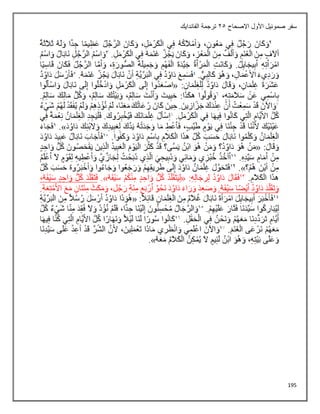 سفر صموئيل الأول الاصحاح ٢٥ ترجمة الفاندايك
2وَكَانَ رَجُلٌ فِي مَعُونٍ، وَأَمْلاَكُهُ فِي الْكَرْمَلِ، وَكَانَ الرَّجُلُ عَظِيمًا جِدًّا وَلَهُ ثَلاَثَةُ
آلاَفٍ مِنَ الْغَنَمِ وَأَلْفٌ مِنَ الْمَعْزِ، وَكَانَ يَجُزُّ غَنَمَهُ فِي الْكَرْمَلِ. 3وَاسْمُ الرَّجُلِ نَابَالُ وَاسْمُ
امْرَأَتِهِ أَبِيجَايِلُ. وَكَانَتِ الْمَرْأَةُ جَيِّدَةَ الْفَهْمِ وَجَمِيلَةَ الصُّورَةِ، وَأَمَّا الرَّجُلُ فَكَانَ قَاسِيًا
وَرَدِيءَ الأَعْمَالِ، وَهُوَ كَالِبِيٌّ. 4فَسَمِعَ دَاوُدُ فِي الْبَرِّيَّةِ أَنَّ نَابَالَ يَجُزُّ غَنَمَهُ. 5فَأَرْسَلَ دَاوُدُ
عَشَرَةَ غِلْمَانٍ، وَقَالَ دَاوُدُ لِلْغِلْمَانِ: «اصْعَدُوا إِلَى الْكَرْمَلِ وَادْخُلُوا إِلَى نَابَالَ وَاسْأَلُوا
بِاسْمِي عَنْ سَلاَمَتِهِ، 6وَقُولُوا هكَذَا: حَيِيتَ وَأَنْتَ سَالِمٌ، وَبَيْتُكَ سَالِمٌ، وَكُلُّ مَالِكَ سَالِمٌ.
7وَالآنَ قَدْ سَمِعْتُ أَنَّ عِنْدَكَ جَزَّازِينَ. حِينَ كَانَ رُعَاتُكَ مَعَنَا، لَمْ نُؤْذِهِمْ وَلَمْ يُفْقَدْ لَهُمْ شَيْءٌ
كُلَّ الأَيَّامِ الَّتِي كَانُوا فِيهَا فِي الْكَرْمَلِ. 8اِسْأَلْ غِلْمَانَكَ فَيُخْبِرُوكَ. فَلْيَجِدِ الْغِلْمَانُ نِعْمَةً فِي
عَيْنَيْكَ لأَنَّنَا قَدْ جِئْنَا فِي يَوْمٍ طَيِّبٍ، فَأَعْطِ مَا وَجَدَتْهُ يَدُكَ لِعَبِيدِكَ وَلابْنِكَ دَاوُدَ». 9فَجَاءَ
الْغِلْمَانُ وَكَلَّمُوا نَابَالَ حَسَبَ كُلِّ هذَا الْكَلاَمِ بِاسْمِ دَاوُدَ وَكَفُّوا. 10فَأَجَابَ نَابَالُ عَبِيدَ دَاوُدَ
وَقَالَ: «مَنْ هُوَ دَاوُدُ؟ وَمَنْ هُوَ ابْنُ يَسَّى؟ قَدْ كَثُرَ الْيَوْمَ الْعَبِيدُ الَّذِينَ يَقْحَصُونَ كُلُّ وَاحِدٍ
مِنْ أَمَامِ سَيِّدِهِ. 11أَآخُذُ خُبْزِي وَمَائِي وَذَبِيحِيَ الَّذِي ذَبَحْتُ لِجَازِّيَّ وَأُعْطِيهِ لِقَوْمٍ لاَ أَعْلَمُ
مِنْ أَيْنَ هُمْ؟». 12فَتَحَوَّلَ غِلْمَانُ دَاوُدَ إِلَى طَرِيقِهِمْ وَرَجَعُوا وَجَاءُوا وَأَخْبَرُوهُ حَسَبَ كُلِّ
هذَا الْكَلاَمِ. 13فَقَالَ دَاوُدُ لِرِجَالِهِ: «لِيَتَقَلَّدْ كُلُّ وَاحِدٍ مِنْكُمْ سَيْفَهُ». فَتَقَلَّدَ كُلُّ وَاحِدٍ سَيْفَهُ،
وَتَقَلَّدَ دَاوُدُ أَيْضًا سَيْفَهُ. وَصَعِدَ وَرَاءَ دَاوُدَ نَحْوُ أَرْبَعِ مِئَةِ رَجُل، وَمَكَثَ مِئَتَانِ مَعَ الأَمْتِعَةِ.
14فَأَخْبَرَ أَبِيجَايِلَ امْرَأَةَ نَابَالَ غُلاَمٌ مِنَ الْغِلْمَانِ قَائِلاً: «هُوَذَا دَاوُدُ أَرْسَلَ رُسُلاً مِنَ الْبَرِّيَّةِ
لِيُبَارِكُوا سَيِّدَنَا فَثَارَ عَلَيْهِمْ. 15وَالرِّجَالُ مُحْسِنُونَ إِلَيْنَا جِدًّا، فَلَمْ نُؤْذَ وَلاَ فُقِدَ مِنَّا شَيْءٌ كُلَّ
أَيَّامِ تَرَدُّدِنَا مَعَهُمْ وَنَحْنُ فِي الْحَقْلِ. 16كَانُوا سُورًا لَنَا لَيْلاً وَنَهَارًا كُلَّ الأَيَّامِ الَّتِي كُنَّا فِيهَا
مَعَهُمْ نَرْعَى الْغَنَمَ. 17وَالآنَ اعْلَمِي وَانْظُرِي مَاذَا تَعْمَلِينَ، لأَنَّ الشَّرَّ قَدْ أُعِدَّ عَلَى سَيِّدِنَا
وَعَلَى بَيْتِهِ، وَهُوَ ابْنُ لَئِيمٍ لاَ يُمْكِنُ الْكَلاَمُ مَعَهُ».
195